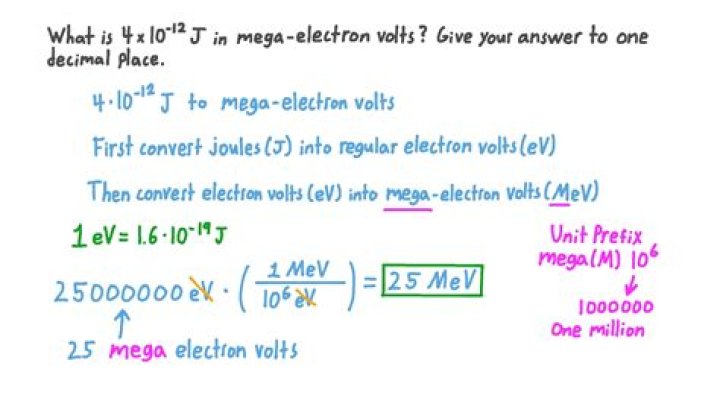 What is 4 x 10⁻¹² J in mega-electron volts? Give your answer to one
decimal place.
4·10⁻¹² J to mega-electron volts
First convert joules (J) into regular electron volts (eV)
Then convert electron volts (eV) into mega-electron volts (MeV)
1 eV = 1.6·10⁻¹⁹ J
Unit Prefix
mega (M) 10⁶
25000000 eV · (1 MeV / 10⁶ eV) = 25 MeV
1000000
One million
25 mega electron volts